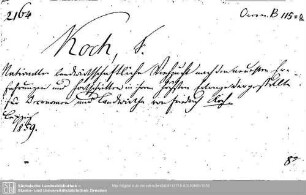 2164
Oecon. B 1150 m
Koch, F.
Rationelle landwirthschaftliche Viehzucht nach den neuesten Er-
fahrungen und Fortschritten in ihrem ganzen Umfange dargestellt.
für Oeconomen und Landwirthe von Friedrich Koch
Leipzig
1859.
8°
Sächsische Landesbibliothek -
Staats- und Universitätsbibliothek Dresden